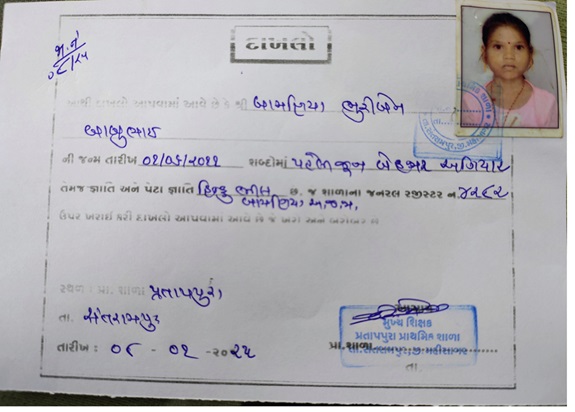 જા.નં
૦૮/૨૫
દાખલો
આથી દાખલો આપવામાં આવે છે કે શ્રી બામણિયા ભુરીબેન
બાબુભાઇ
ની જન્મ તારીખ ૦૧/૦૬/૨૦૧૧ શબ્દોમાં પહેલી જુન બેહજાર અગિયાર
તેમજ જ્ઞાતિ અને પેટા જ્ઞાતિ હિન્દુ ભીલ છે. જે શાળાના જનરલ રજીસ્ટર નં. ૪૨૬૨
બામણિયા અ.જ.જા.
ઉપર ખરાઈ કરી દાખલો આપવામાં આવે છે જે ખરો અને બરાબર છે
સ્થળ : પ્રા. શાળા પ્રતાપપુરા
તા. સંતરામપુર
તારીખ : ૦૮ - ૦૧ - ૨૦૨૫
આચાર્ય
મુખ્ય શિક્ષક
પ્રતાપપુરા પ્રાથમિક શાળા
તા.સંતરામપુર,જી.મહીસાગર
પ્રા.શાળા
તા.